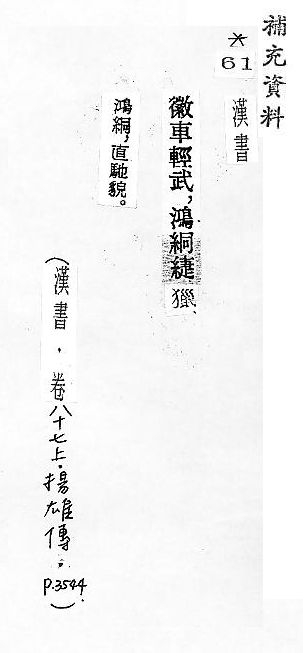 補充資料
*
61
漢書
徽車輕武,鴻絧緁獵
鴻絧,直馳貌。
(漢書.卷八十七上.揚雄傳.p.3544.)